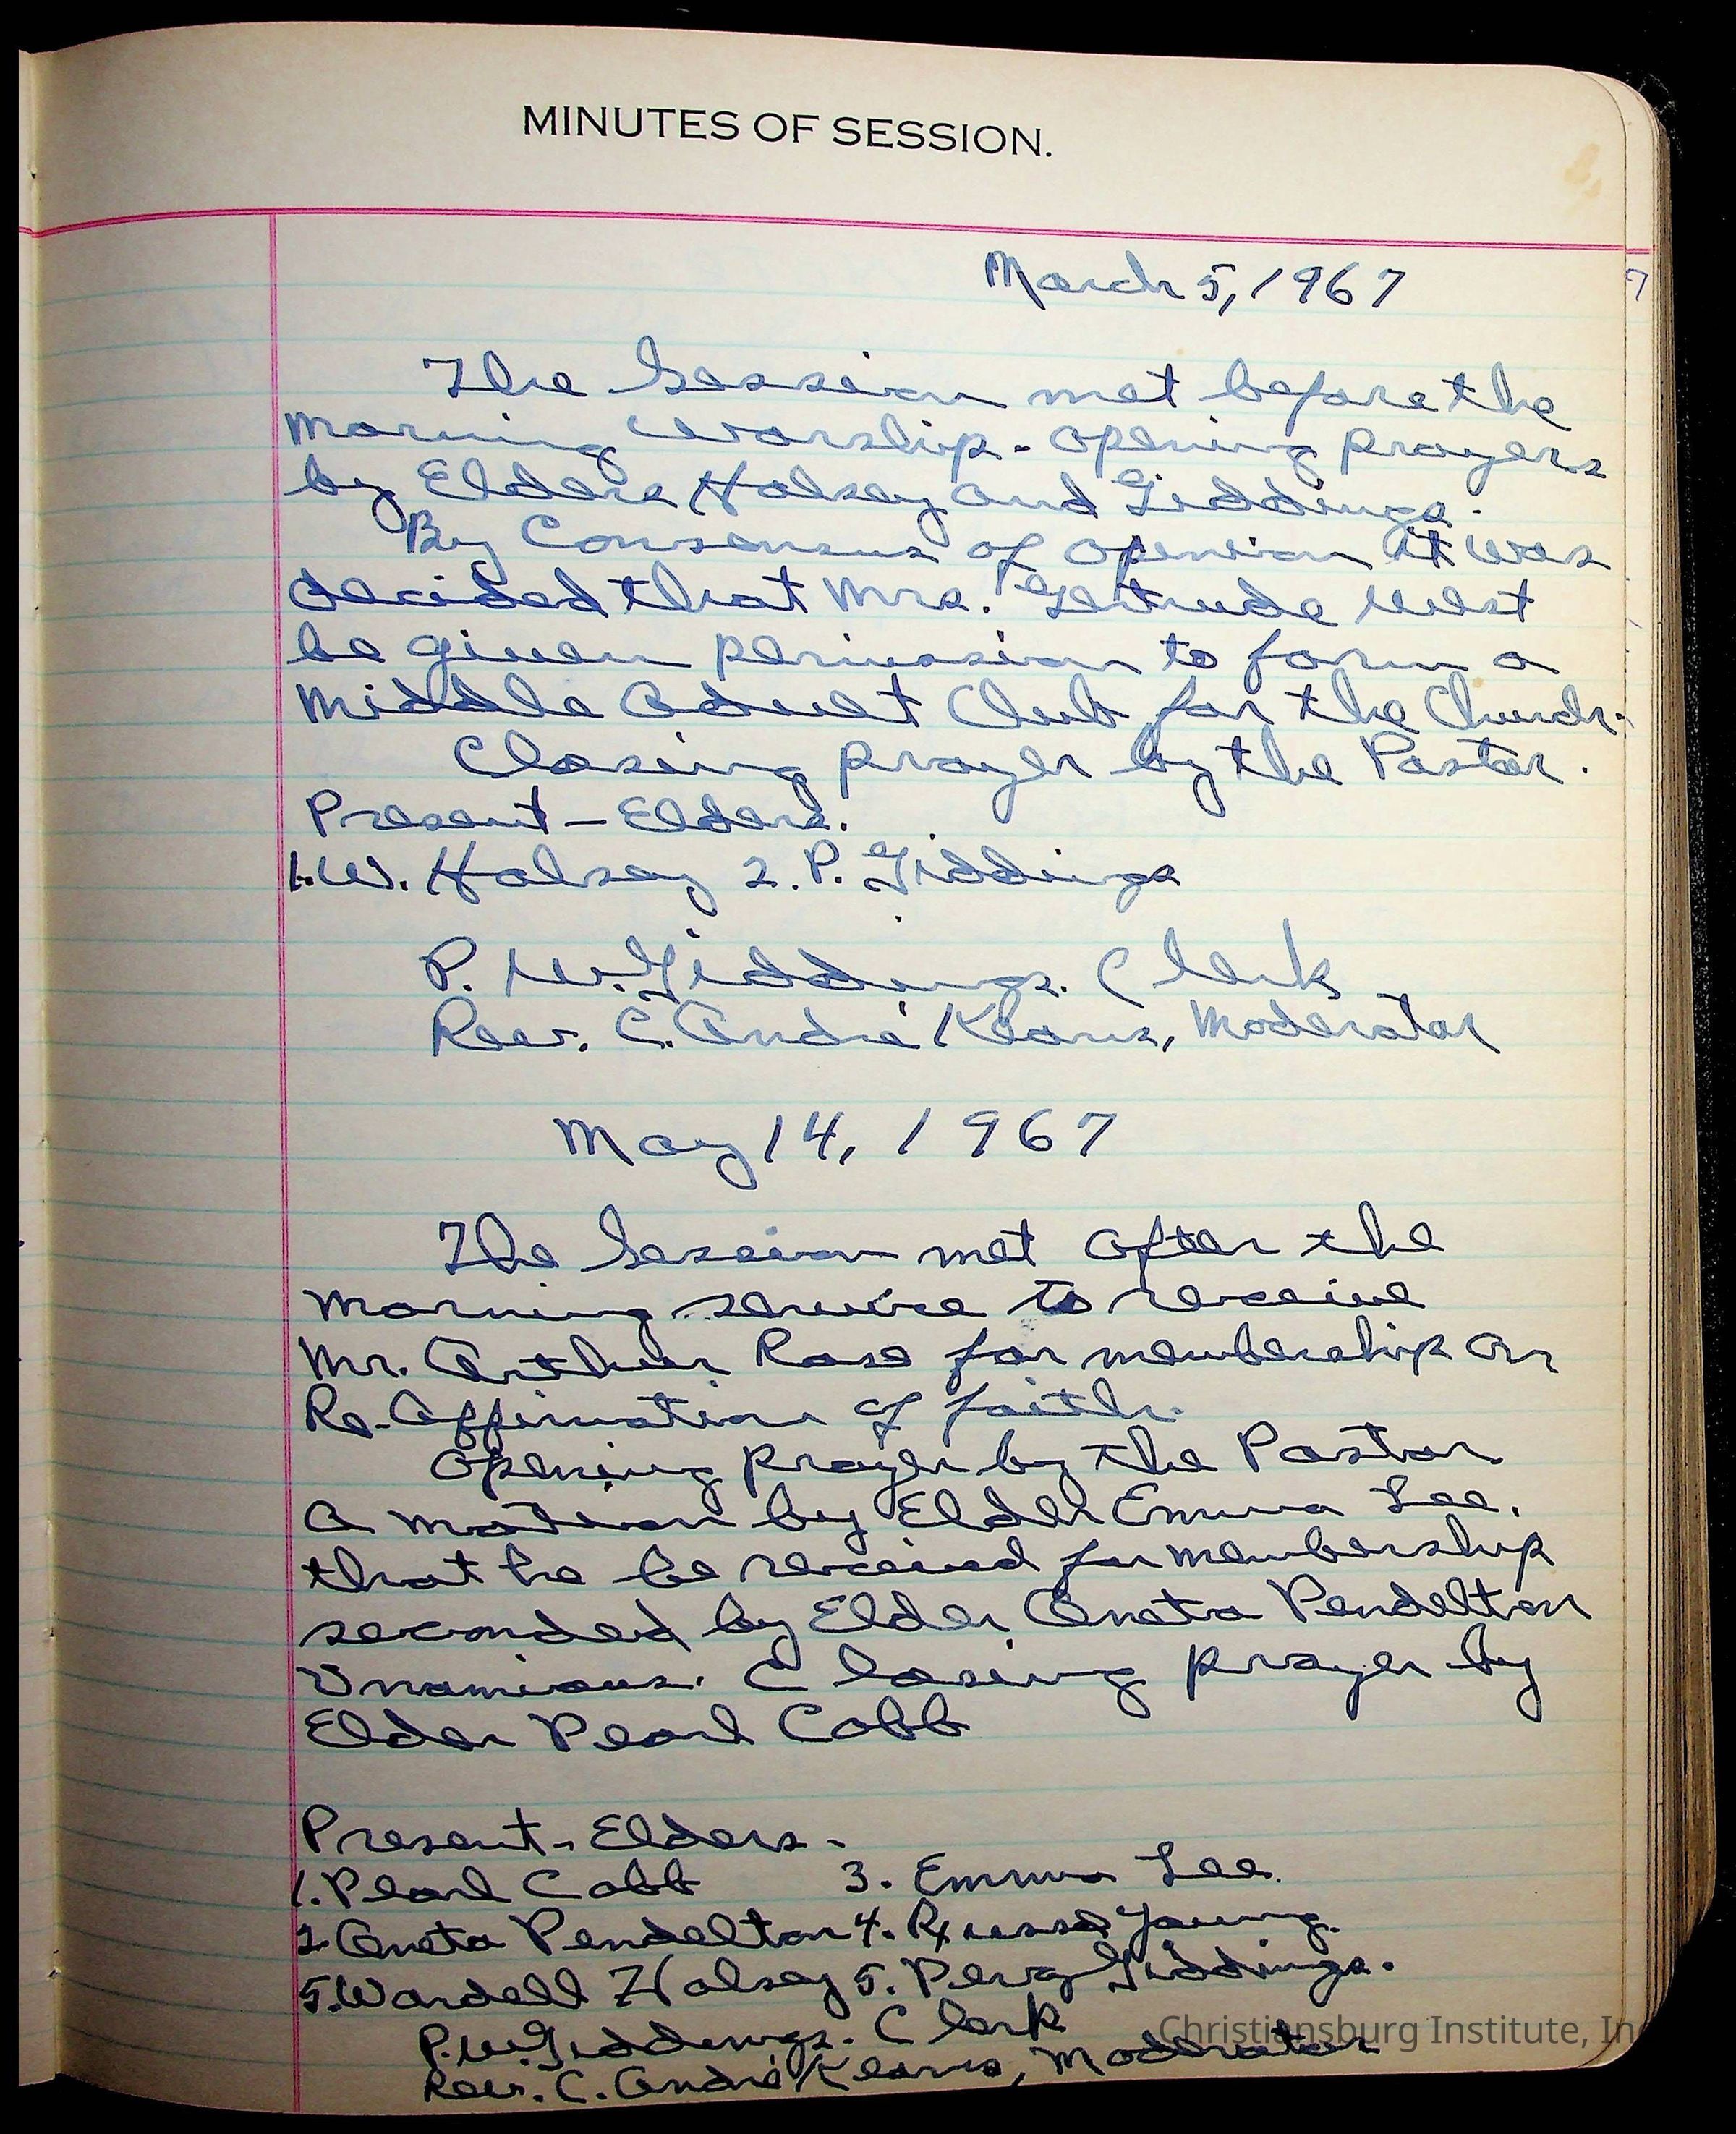 MINUTES OF SESSION.
March 5, 1967
7
The Session met before the
morning worship - opening prayers
by Elders Halsey and Giddings.
By Consensus of openion it was
decided that Mrs. Gertrude West
be given permission to form a
Middle Adult Club for the Church.
Closing prayer by the Pastor.
Present - Elders.
1. W. Halsey 2. P. Giddings
P. W. Giddings. Clerk
Rev. C. André Kearns, Moderator
May 14, 1967
The Session met after the
morning service to receive
Mr. Arthur Rose for membership on
Re-Affirmation of faith.
Opening prayer by the Pastor
A motion by Elder Emma Lee.
that he be received for membership
seconded by Elder Aneta Pendelton
Unamious. Closing prayer by
Elder Pearl Cobb
Present - Elders.
1. Pearl Cobb 3. Emma Lee.
2 Aneta Pendelton 4. Young.
5. Wardell Halsey 5. Percy Giddings.
P. W. Giddings. Clerk
Rev. C. André Kearns, Moderator
Christiansburg Institute, Inc